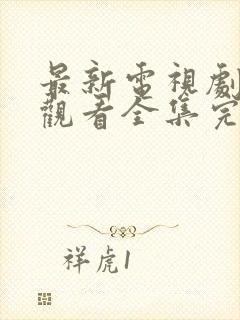 最新電視劇
觀看全集完
祥虎1